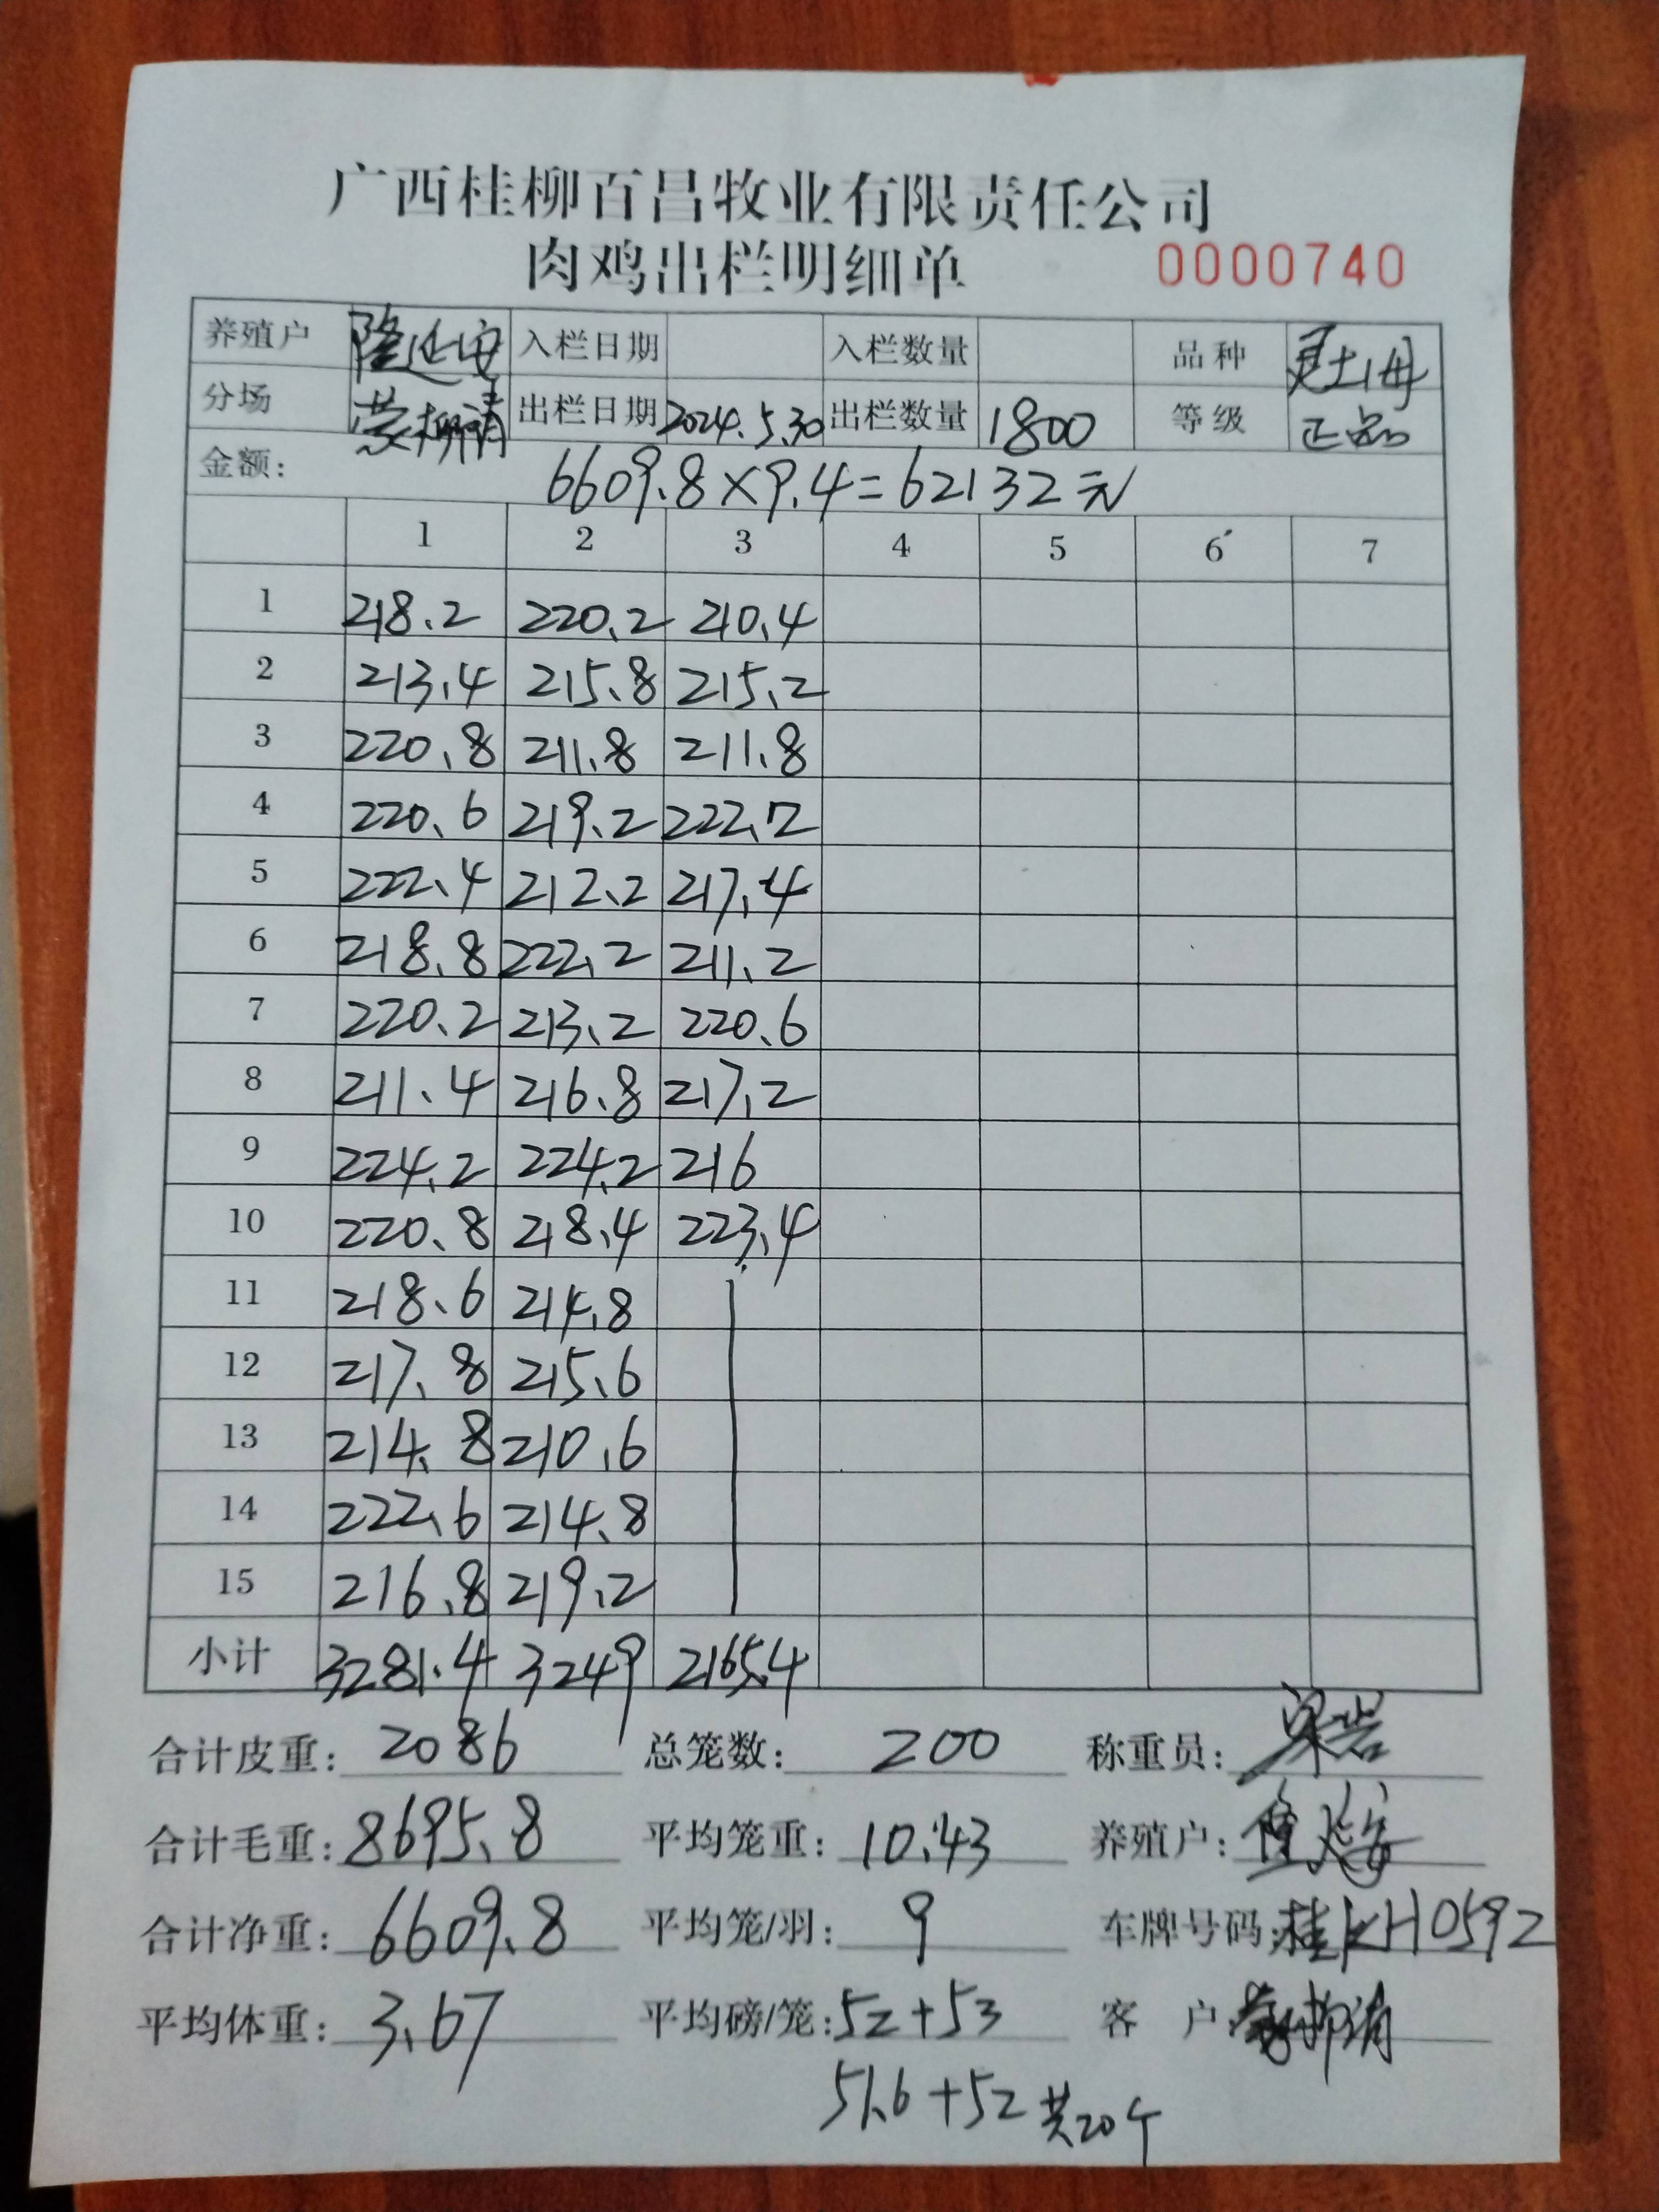 广西桂柳百昌牧业有限责任公司
肉鸡出栏明细单 0000740
养殖户 入栏日期 入栏数量 品种 土1母
分场 蒙柳清 出栏日期 2024.5.30 出栏数量 1800 等级 正品
金额: 6609.8×9.4=62132元
1 2 3 4 5 6 7
1 218.2 220.2 210.4
2 213.4 215.8 215.2
3 220.8 211.8 211.8
4 220.6 219.2 222.2
5 222.4 212.2 217.4
6 218.8 222.2 211.2
7 220.2 213.2 220.6
8 211.4 216.8 217.2
9 224.2 224.2 216
10 220.8 218.4 223.4
11 218.6 214.8
12 217.8 215.6
13 214.8 210.6
14 222.6 214.8
15 216.8 219.2
小计 3281.4 3249 2165.4
合计皮重: 2086 总笼数: 200 称重员:
合计毛重: 8695.8 平均笼重: 10.43 养殖户:
合计净重: 6609.8 平均笼/羽: 9 车牌号码: 桂 H0592
平均体重: 3.67 平均磅/笼: 52+53 客户: 蒙柳清
51.6+52 共20个